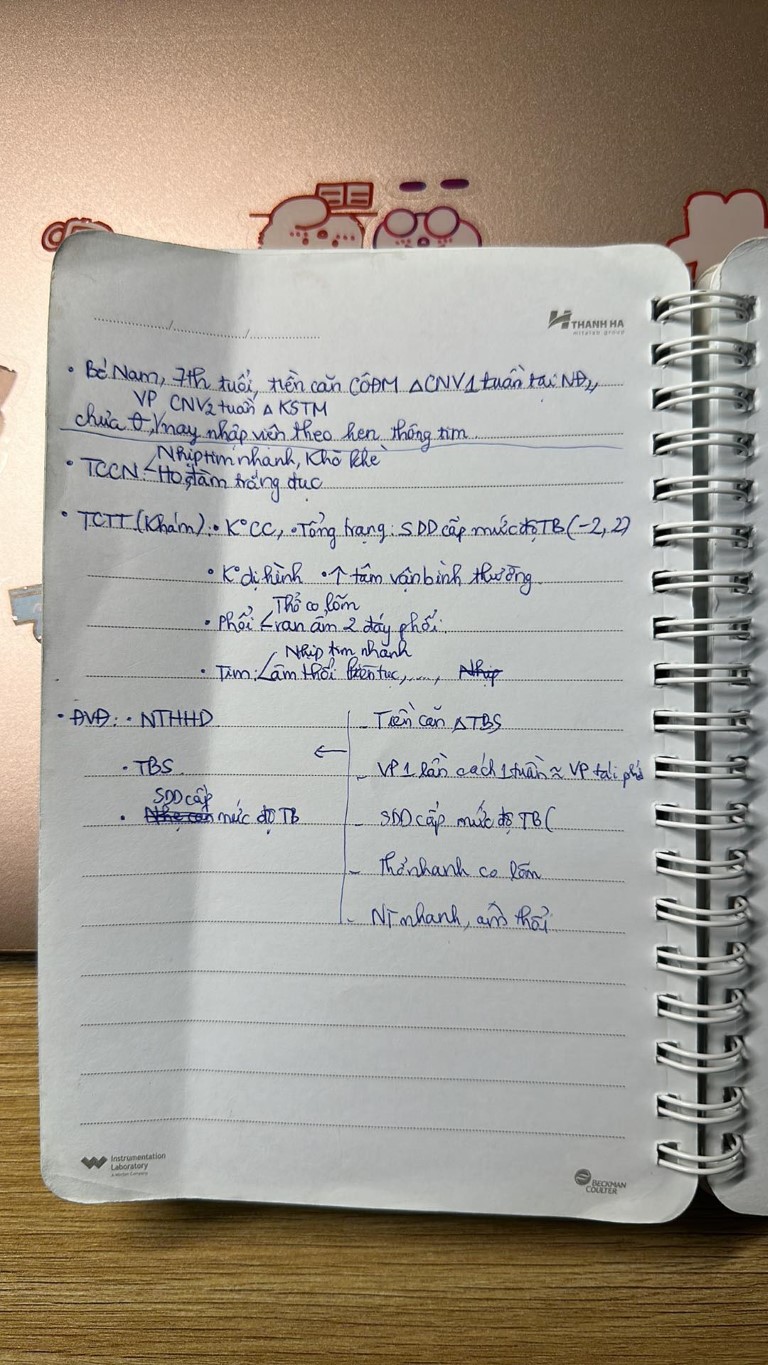 THANH HA
• Bé Nam, 7th tuổi, tiền căn CÔĐM △CNV1 tuần tại NĐ2,
VP CNV2 tuần △ KSTM
chưa θ, nay nhập viện theo hẹn thông tim
• TCCN: Nhịp tim nhanh, Khò khè
Ho, đàm trắng đục
• TCTT (Khám): • K°CC, • Tổng trạng: SDD cấp mức độ TB (-2, 2)
• K° dị hình • ↑ tâm vận bình thường
Thở co lõm
• Phổi < ran ẩm 2 đáy phổi
Nhịp tim nhanh
• Tim: < âm thổi liên tục, ...., Nhịp
• ĐVĐ: • NTHHD
- Tiền căn △TBS
←
• TBS
- VP 1 lần cách 1 tuần ≈ VP tái phá
SDD cấp
• mức độ TB
- SDD cấp mức độ TB (
- Thở nhanh co lõm
- NT nhanh, âm thổi
Instrumentation
Laboratory
BECKMAN
COULTER